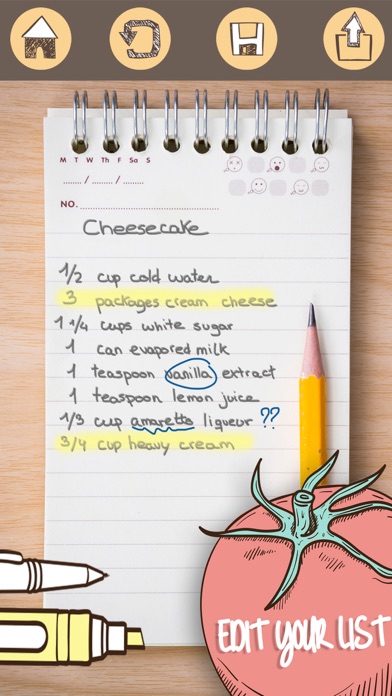 M T W Th F Sa S
...... / ......... / .........
NO. ....................................
Cheesecake
1/2 cup cold water
3 packages cream cheese
1 1/4 cups white sugar
1 can evapored milk
1 teaspoon vanilla extract
1 teaspoon lemon juice
1/3 cup amaretto liqueur ??
3/4 cup heavy cream
EDIT YOUR LIST